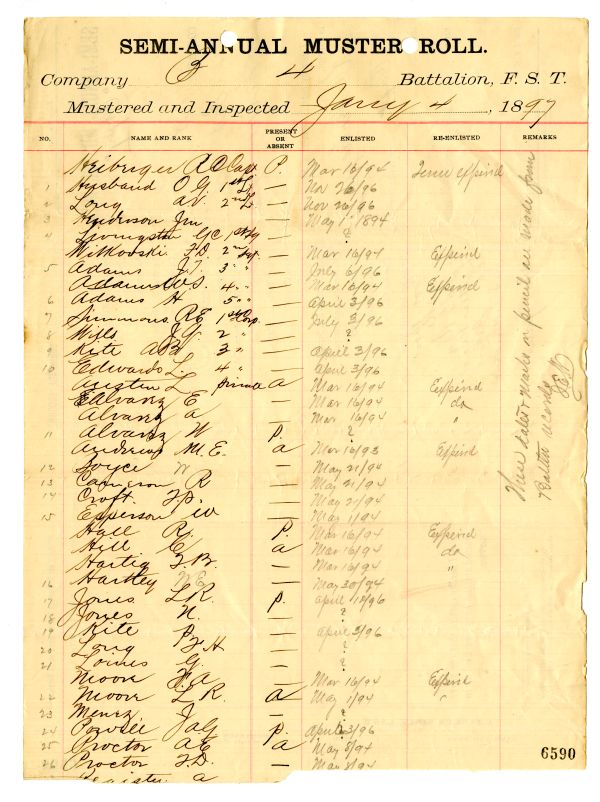 SEMI-ANNUAL MUSTER ROLL.
Company B 4 Battalion, F. S. T.
Mustered and Inspected Jany 4, 1897
NO. NAME AND RANK PRESENT OR ABSENT ENLISTED RE-ENLISTED REMARKS
Heiberger R C Cap. P. Mar 16/94 Term expired
1 Husband O G. 1st Lt — Nov 26/96
2 Long A V. 2nd Lt — Nov 26/96
3 Henderson Jm — May 1st 1894
4 Livingston G C 1st Sg — ?
Witkovski F. D. 2nd Sgt. — Mar 16/94 Expired
5 Adams J. T. 3 " " — July 6/96
Adams W S. 4 " " — Mar 16/94 Expired
6 Adams H 5 " " — April 3/96
7 Simmons R E 1st Corp. — July 3/96
8 Wills 2 " — ?
9 Kite 3 " — April 3/96
10 Edwards L 4 " — April 3/96
Austin L private a Mar 16/94 Expired
Alvarez E — Mar 16/94 do
Alvarez A — Mar 16/94 "
11 Alvarez W P. ?
Andrews M. E. a Mar 16/93 Expired
12 Joyce W — May 21/94
13 Cameron R — May 21/94
14 Croft F. D. — May 21/94
15 Epperson W — May 11/94
Hall R. P. Mar 16/94 Expired
Hill C a Mar 16/94 do
Hartig F. B. — Mar 16/94 "
16 Hartley W E — May 30/94
17 Jones L R. P. April 13/96
18 Jones N. — ?
19 Kite — April 3/96
20 Long B H — ?
21 Loines G. — ?
Moore F. A — Mar 16/94 Expired
22 Moore L R. a May 1/94 "
23 Menez J — ?
24 Powell J a G P. April 3/96
25 Proctor A C a May 5/94
26 Proctor F. D. — May 5/94
Register a
These dates & marks in pencil are made from
Battn records
6590